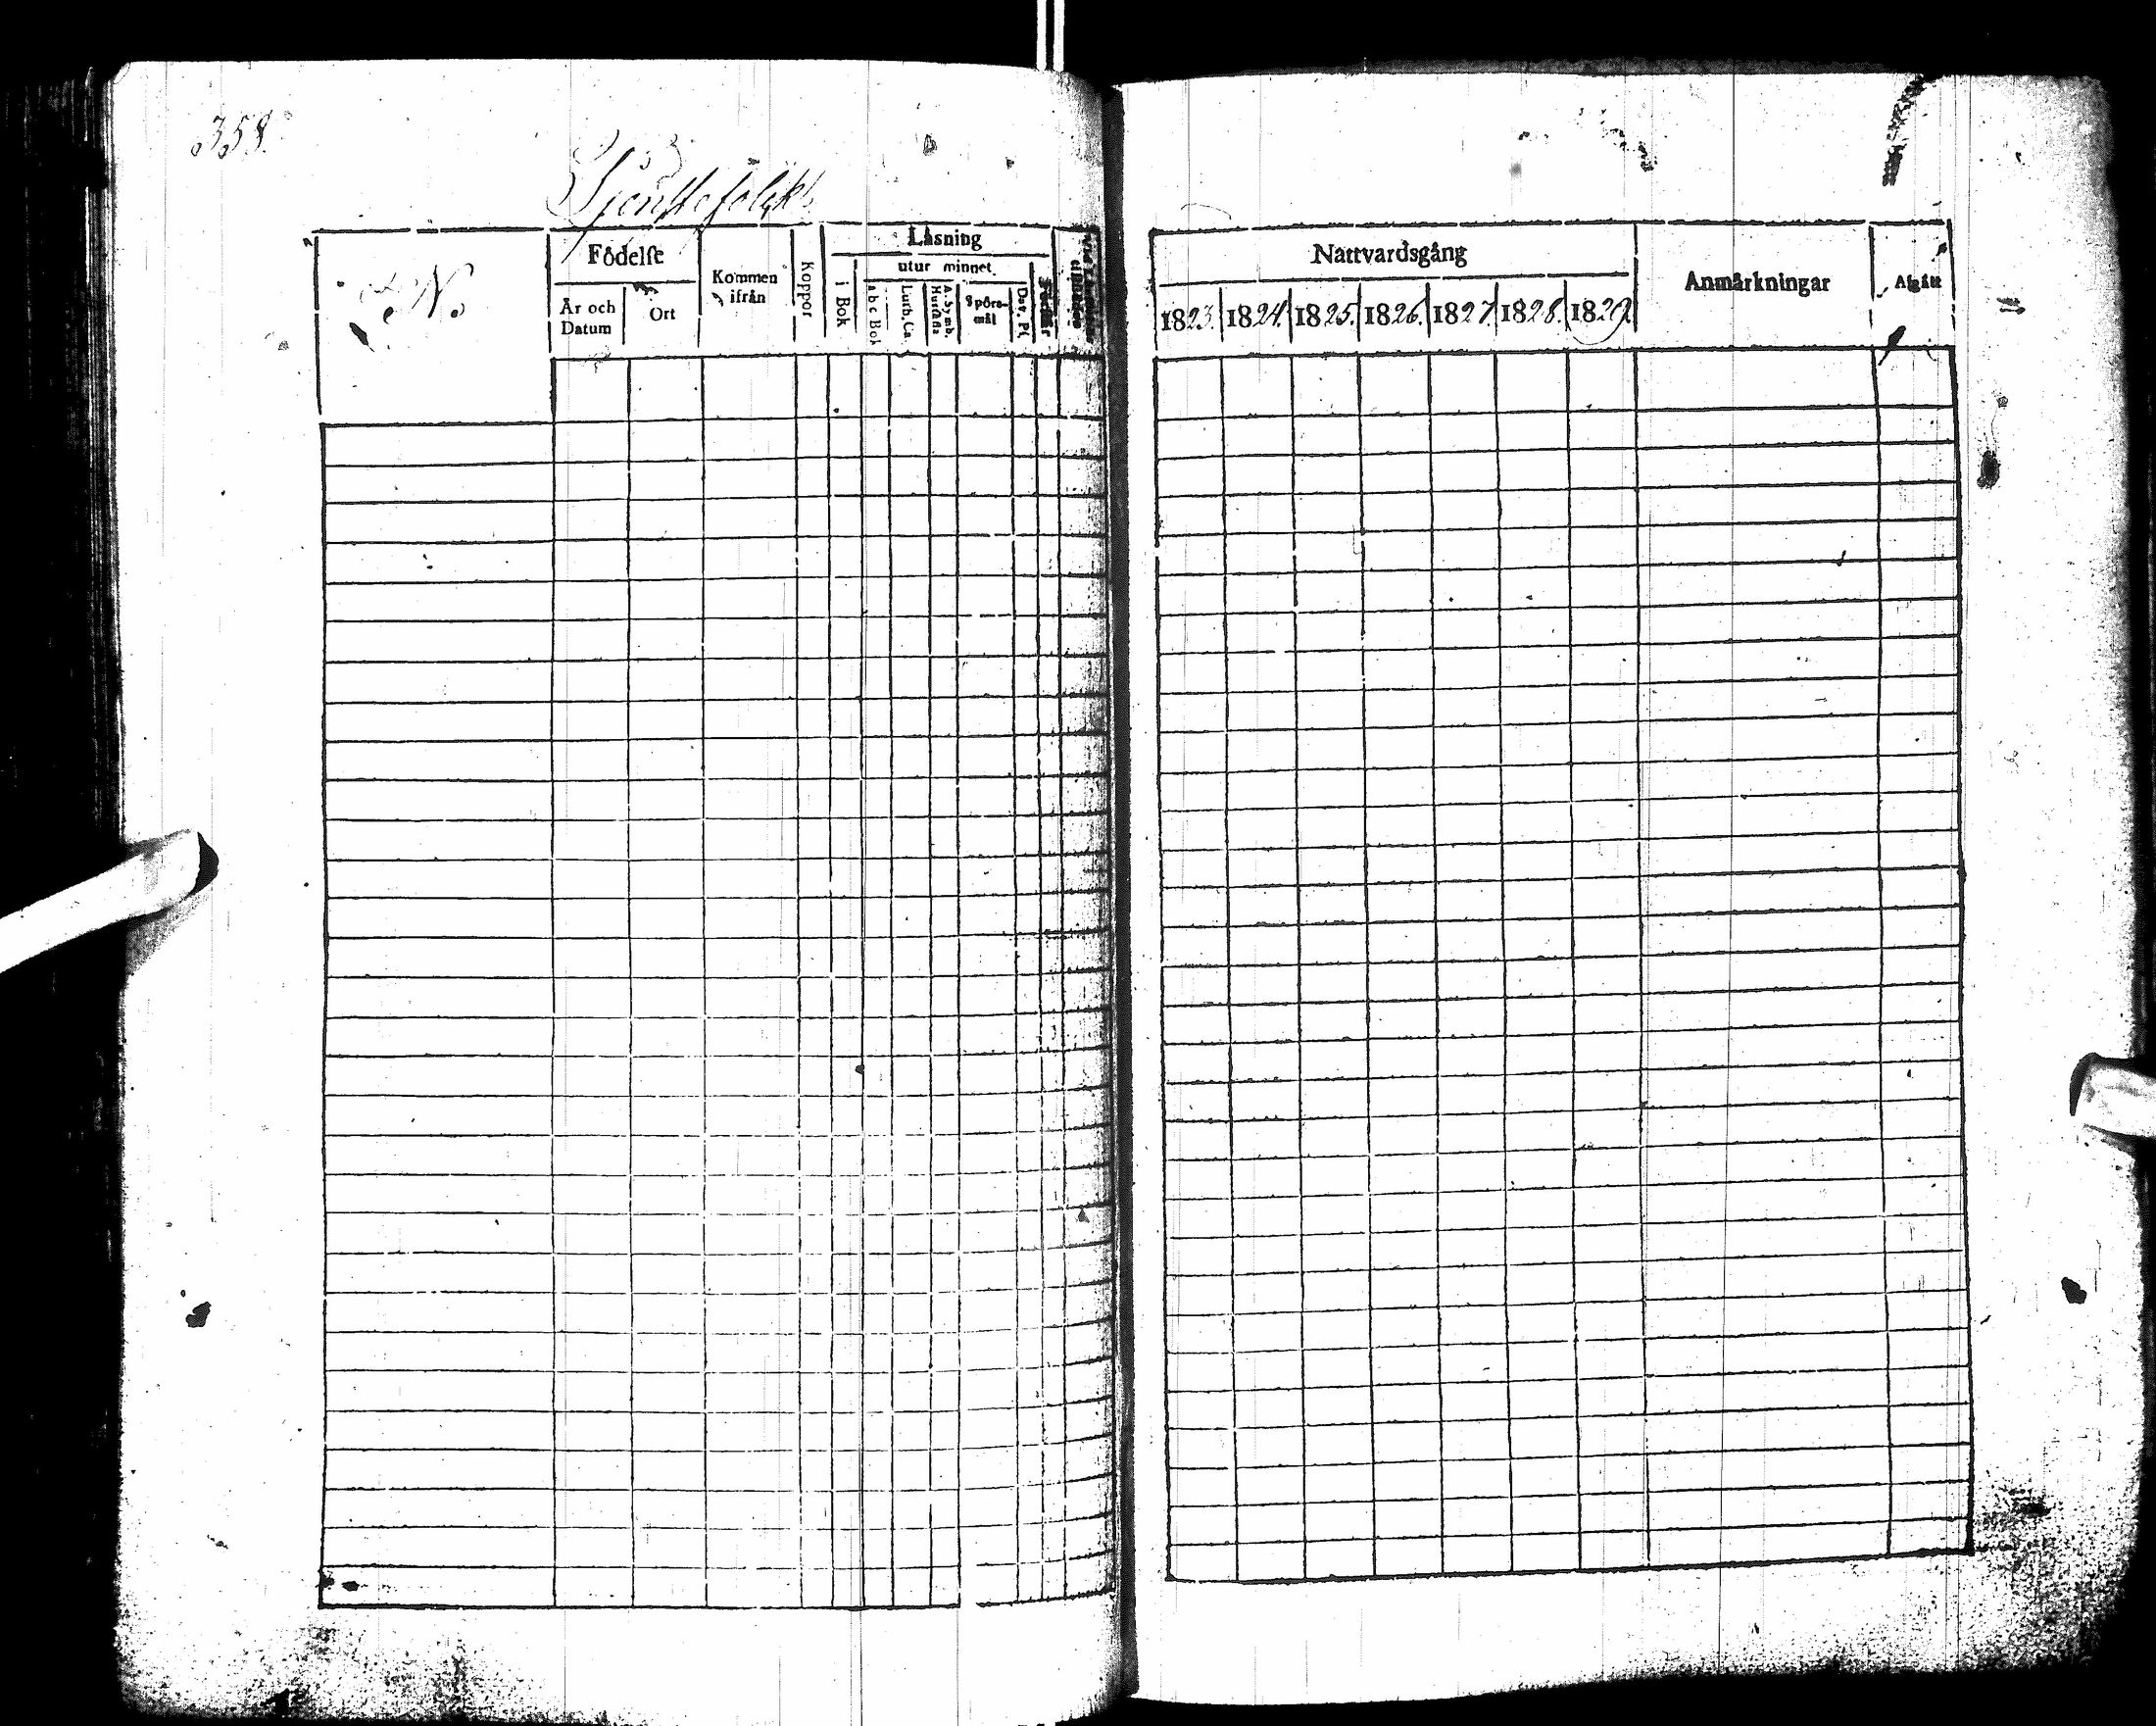 358.
Tjenstefolk
N.
Födelse
År och Datum
Ort
Kommen ifrån
Koppor
Läsning
i Bok
utur minnet
a b c Bok
Luth. Ca.
A. Symb. Hustafla
Spörsmål
Dav. Ps
Förstår
Nattvardsgång
1823. 1824. 1825. 1826. 1827. 1828. 1829.
Anmärkningar
Afgått